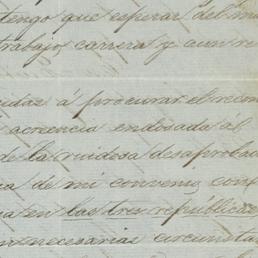 tengo que esperar del m
trabajo, carrera y aun re
á procurar el recon
acreencia endosada al
de la ruidosa desaproba
de mi convenio con
en las tres repúblicas
necesarias circunstan